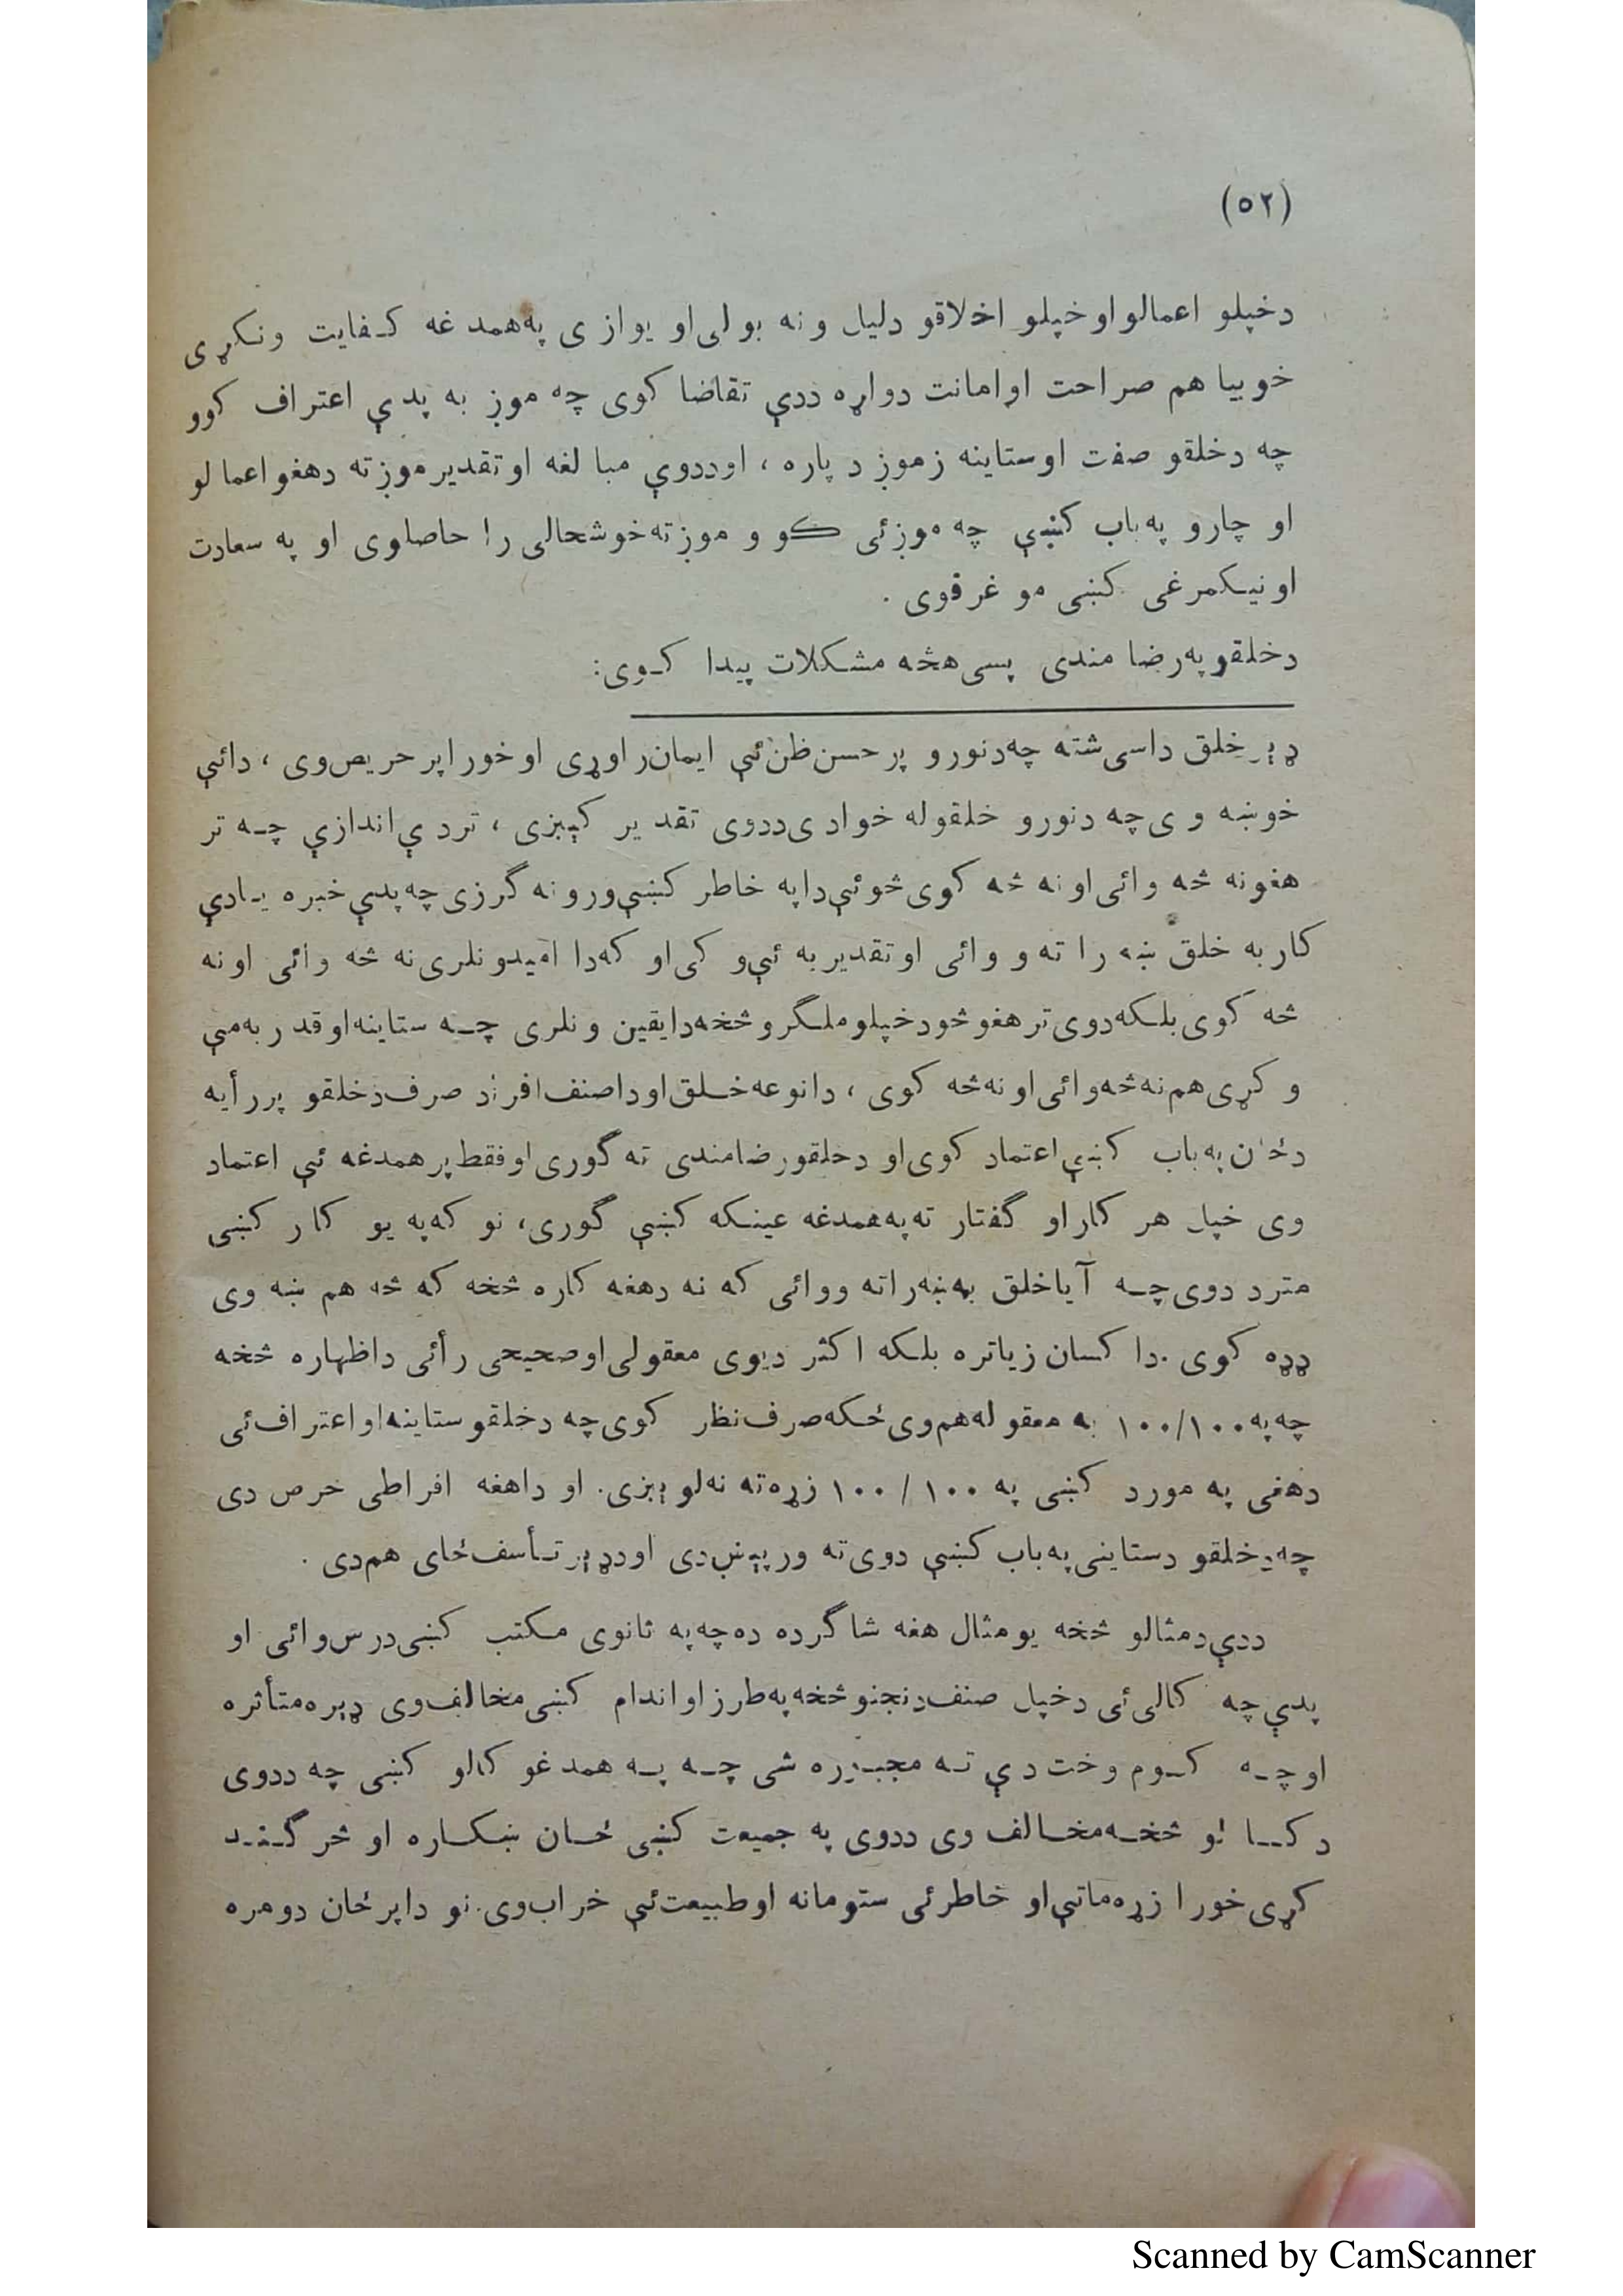 (٥٢)
دخپلو اعمالو اوخپلو اخلاقو دلیل ونه بولی او یوازی په همدغه کفایت ونکړی
خوبیا هم صراحت اوامانت دواړه ددې تقاضا کوی چه موږ به پدې اعتراف کوو
چه دخلقو صفت اوستاینه زموږ د پاره ، اوددوې مبالغه اوتقدیر موږته دهغو اعمالو
او چارو په باب کښې چه موږئی کوو موږته خوشحالی را حاصلوی او په سعادت
اونیکمرغی کښی مو غرقوی .
دخلقو په رضا مندی پسی هڅه مشکلات پیدا کوی:
ډېر خلق داسی شته چه دنورو پر حسن ظن ئې ایمان راوړی اوخورا پر حریص وی ، دائې
خوښه وی چه دنورو خلقو له خوا دی ددوی تقدیر کېږی ، تردې اندازې چه تر
هغو نه څه وائی او نه څه کوی څو ئې دا په خاطر کښې ورو نه گرزی چه پدې خبره یادې
کار به خلق ښه را ته و وائی او تقدیر به ئې و کی او که دا امیدو نلری نه څه وائی او نه
څه کوی بلکه دوی تر هغو څو دخپلو ملگرو څخه دا یقین و نلری چه ستاینه او قدر به مې
و کړی هم نه څه وائی او نه څه کوی ، دا نوعه خلق او دا صنف افراد صرف دخلقو پر رأیه
دځان په باب کښې اعتماد کوی او دخلقو رضامندی ته گوری او فقط پر همدغه ئې اعتماد
وی خپل هر کار او گفتار ته په همدغه عینکه کښې گوری، نو که په یو کار کښی
متردد وی چه آیا خلق به ښه راته ووائی که نه دهغه کاره څخه که څه هم ښه وی
ډډه کوی . دا کسان زیاتره بلکه اکثر دیوی معقولی او صحیحی رأئی داظهاره څخه
چه په ١٠٠/١٠٠ به معقوله هم وی ځکه صرف نظر کوی چه دخلقو ستاینه او اعتراف ئی
دهغی په مورد کښی په ١٠٠ / ١٠٠ زړه ته نه لوېږی. او داهغه افراطی حرص دی
چه دخلقو دستاینی په باب کښې دوی ته ور پېښ دی او دډېر تأسف ځای هم دی .
ددې دمثالو څخه یو مثال هغه شاگرده ده چه په ثانوی مکتب کښی درس وائی او
پدې چه کالی ئی دخپل صنف دنجنو څخه په طرز او اندام کښی مخالف وی ډېره متأثره
اوچه کوم وخت دې ته مجبوره شی چه په همدغو کالو کښی چه ددوی
د کالو څخه مخالف وی ددوی په جمیعت کښی ځان ښکاره او څرگند
کړی خورا زړه ماتې او خاطرئی ستومانه او طبیعت ئې خراب وی. نو دا پر ځان دومره
Scanned by CamScanner